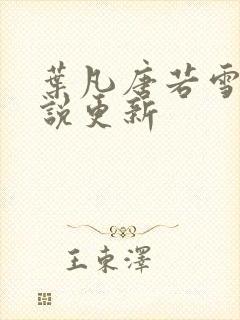 葉凡唐若雪
說更新
王東澤